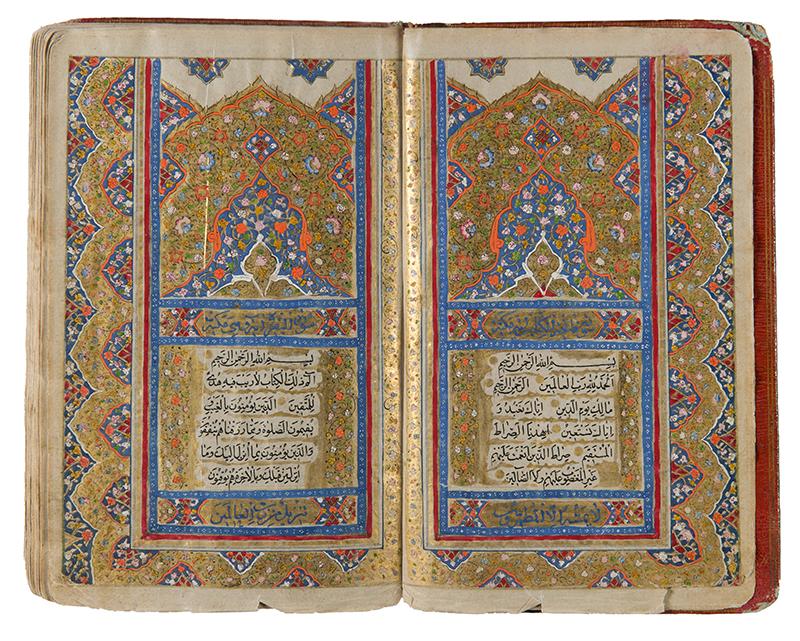 سورة فاتحة الكتاب مكية
بسم الله الرحمن الرحيم
الحمد لله رب العالمين الرحمن الرحيم
مالك يوم الدين اياك نعبد و
اياك نستعين اهدنا الصراط
المستقيم صراط الذين انعمت عليهم
غير المغضوب عليهم ولا الضالين
لا يمسه الا المطهرون
سورة البقرة
بسم الله الرحمن الرحيم
الم ذلك الكتاب لا ريب فيه هدى
للمتقين الذين يؤمنون بالغيب و
يقيمون الصلوة ومما رزقناهم ينفقون
والذين يؤمنون بما انزل اليك وما
انزل من قبلك وبالاخرة هم يوقنون
تنزيل من رب العالمين